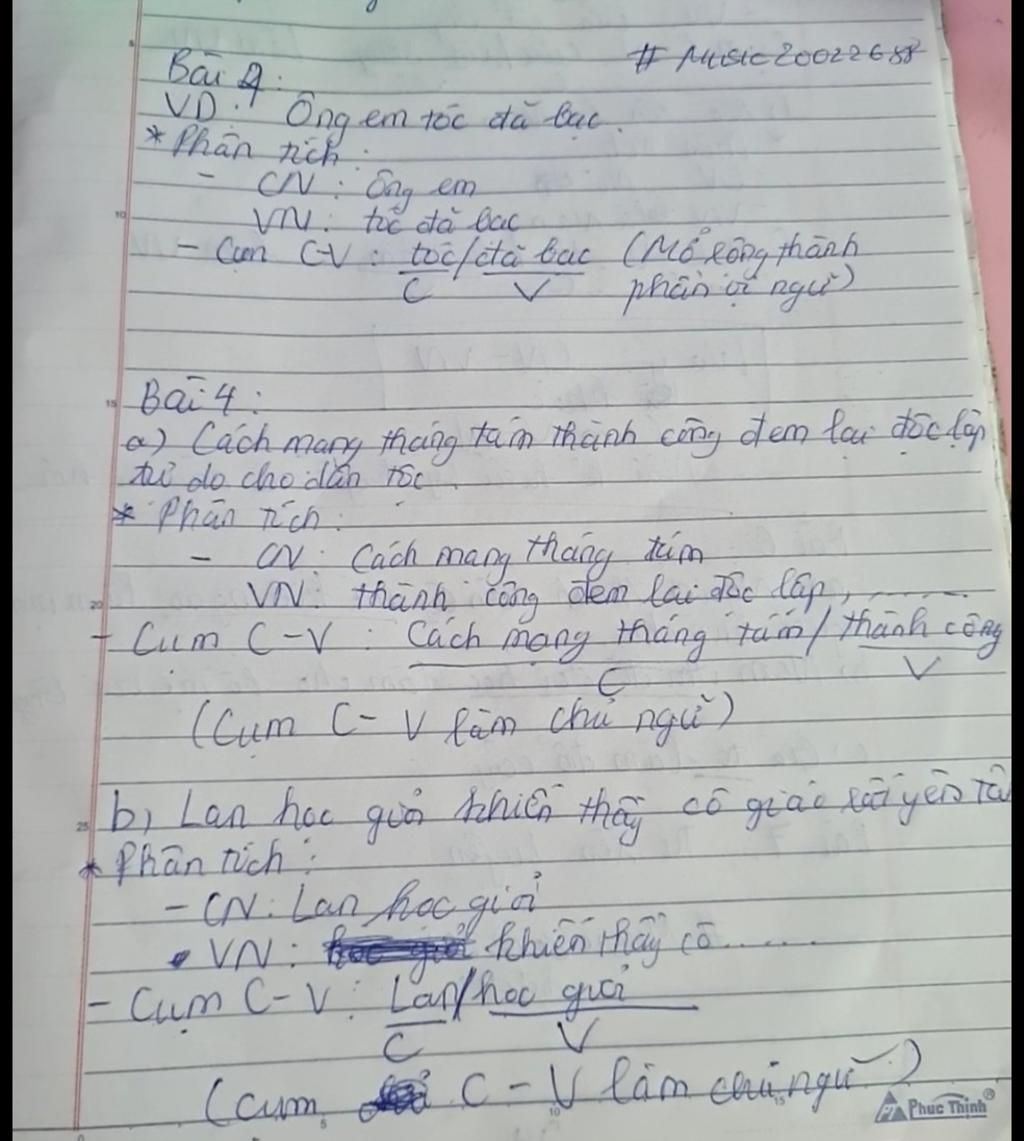 # Music20022688
Bài 4:
VD: Ông em tóc đã bạc.
* Phân tích:
- CN: Ông em
VN: tóc đã bạc
- Cụm C-V: tóc/đã bạc (Mở rộng thành
C V phần vị ngữ)
Bài 4:
a) Cách mạng tháng tám thành công đem lại độc lập
tự do cho dân tộc.
* Phân tích:
- CN: Cách mạng tháng tám
VN: thành công đem lại độc lập, ........
- Cụm C-V: Cách mạng tháng tám/thành công
C V
(Cụm C-V làm chủ ngữ)
b) Lan học giỏi khiến thầy cô giáo rất yên tâ
* Phân tích:
- CN: Lan học giỏi
- VN: khiến thầy cô ......
- Cụm C-V: Lan/học giỏi
C V
(Cụm C-V làm chủ ngữ)
Phuc Thinh®